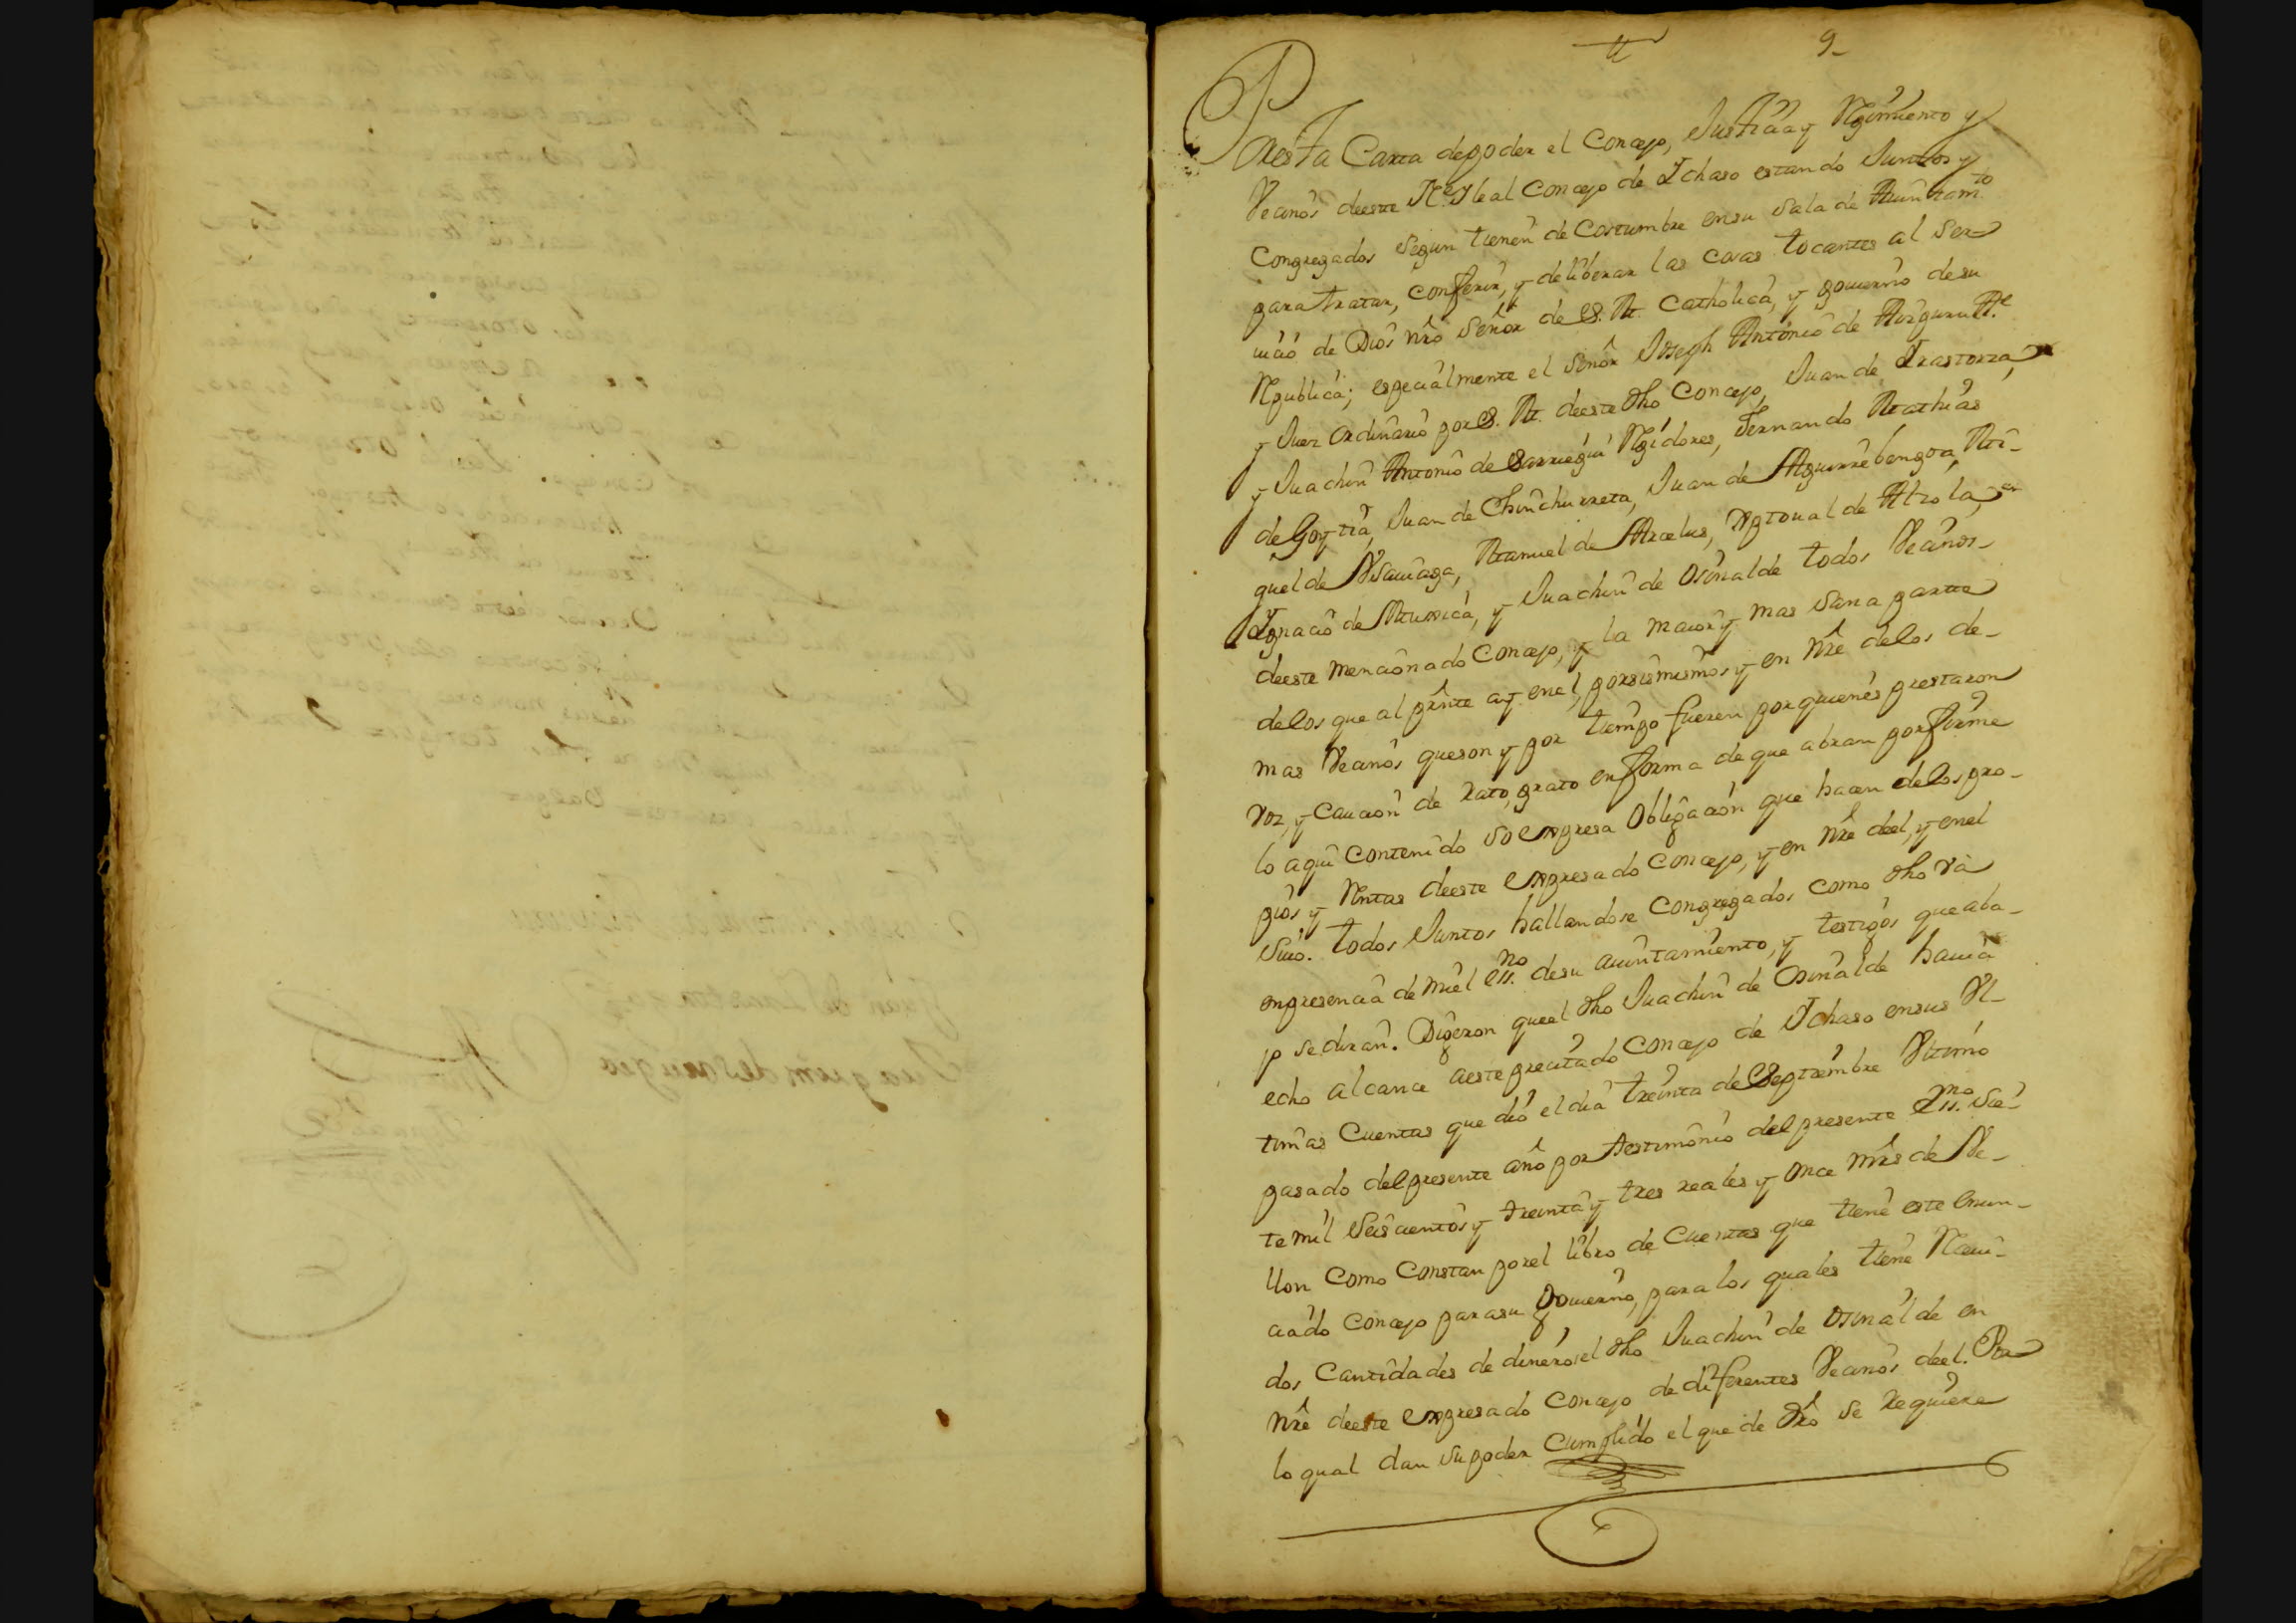 9
Por esta Carta de poder el Concejo, Justicia y Regimiento y
Vecinos de este N. y leal Concejo de Ichaso estando Juntos y
Congregados segun tienen de Costumbre en su Sala de Aiuntam.to
para tratar, conferir, y deliberar las cosas tocantes al ser-
uicio de Dios nro Señor de S. M. Catholica, y gouierno de su
Republica; especialmente el Señor Joseph Antonio de Aizguru Al.e
y Juez ordinario por S. M. de este dho Concejo, Juan de Irastorza,
y Juachin Antonio de Sarriegui Regidores, Fernando Mathias
de Goytia, Juan de Chinchurreta, Juan de Aguirrebengoa, Mi-
guel de Vicuñaga, Manuel de Arcelus, Xptoual de Alzola,
Ygnacio de Murrica, y Juachin de Osinalde todos Vecinos
de este mencionado Concejo, y la maior y mas Sana parte
de los que al prnte ay en el, por si mismos y en nre de los de-
mas Vecinos que son y por tiempo fueren por quienes prestaron
voz, y Caucion de rato, grato en forma de que abran por firme
lo aqui contenido so expresa Obligacion que hacen de los pro-
pios y Rentas de este expresado Concejo, y en nre del, y en el
Suio. Todos Juntos hallandose Congregados como dho va
en presencia de mi el Ess.no de su aiuntamiento, y testigos que aba-
jo se diran. Digeron que el dho Juachin de Osinalde hauia
echo alcance a este precitado Concejo de Ichaso en sus Vl-
timas Cuentas que dio el dia treinta de Septiembre Vltimo
pasado del presente año por testimonio del presente Ess.no Sie-
te mil Seiscientos y treinta y tres reales y once mrs de Ve-
llon como constan por el libro de Cuentas que tiene este enun-
ciado Concejo para su gouierno, para los quales tiene Reciui-
dos Cantidades de dinero el dho Juachin de Osinalde en
nre de este expresado Concejo de diferentes Vecinos de el. Para
lo qual dan su poder Cumplido el que de dro se requiere